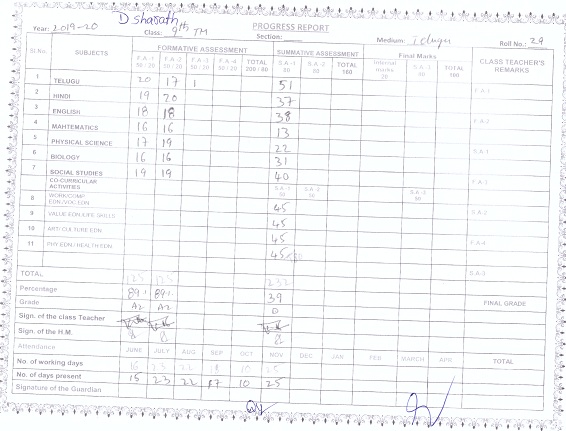 D sharath
PROGRESS REPORT
Year: 2019-20 Class: 9th TM Section: Medium: Telugu Roll No.: 29
Sl.No. SUBJECTS FORMATIVE ASSESSMENT SUMMATIVE ASSESSMENT Final Marks CLASS TEACHER'S REMARKS
F.A-1 50 / 20 F.A-2 50 / 20 F.A-3 50 / 20 F.A-4 50 / 20 TOTAL 200 / 80 S.A-1 S.A-2 TOTAL 160 Internal marks 20 S.A-3 80 TOTAL 100
1 TELUGU 20 17 1 51 F.A-1
2 HINDI 19 20 37
3 ENGLISH 18 18 38 F.A-2
4 MAHTEMATICS 16 16 13
5 PHYSICAL SCIENCE 17 19 22 S.A-1
6 BIOLOGY 16 16 31
7 SOCIAL STUDIES 19 19 40 F.A-3
CO-CURRICULAR ACTIVITIES S.A-1 50 S.A-2 50 S.A-3 50
8 WORK/COMP. EDN./VOC.EDN. 45 S.A-2
9 VALUE EDN./LIFE SKILLS 45
10 ART/ CULTURE EDN. 45 F.A-4
11 PHY.EDN / HEALTH EDN. 45 S.A-3
TOTAL 125 125 232
Percentage 89% 89% 39 FINAL GRADE
Grade A2 A2 D
Sign. of the class Teacher
Sign. of the H.M.
Attendance JUNE JULY AUG SEP OCT NOV DEC JAN FEB MARCH APR. TOTAL
No. of working days 16 23 22 18 10 25
No. of days present 15 23 22 17 10 25
Signature of the Guardian